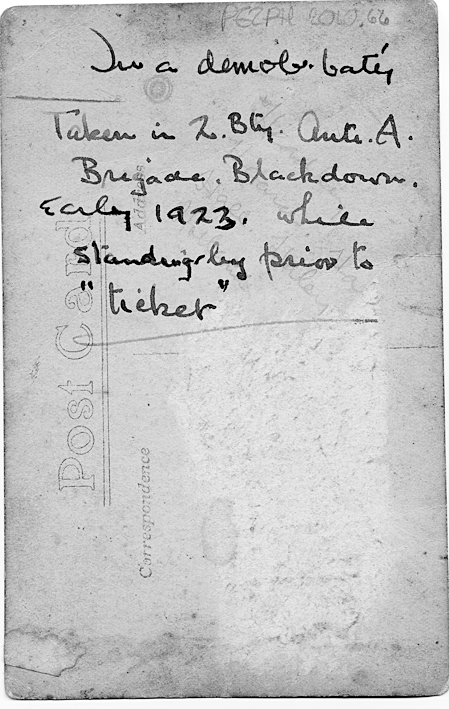 PEZPH 2010.66
In a demob. baty
Taken in 2. Bty. Anti. A.
Brigade. Blackdown.
Early 1923. while
standing by prior to
"ticket"
Post Card
Address
Correspondence